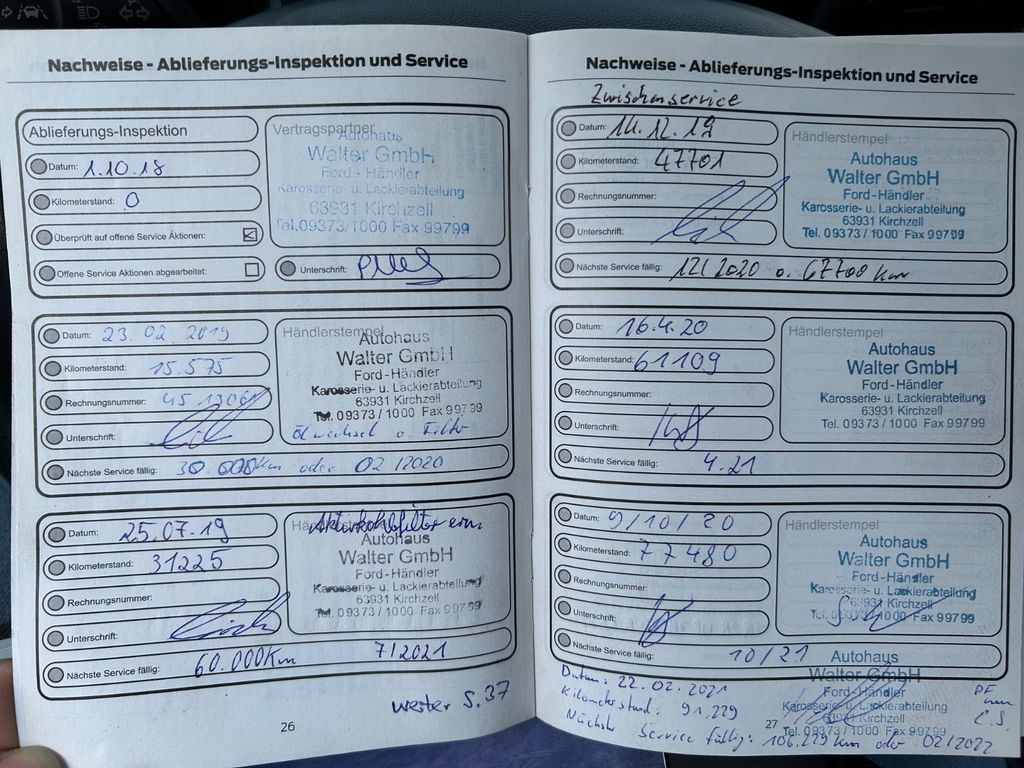 Nachweise - Ablieferungs-Inspektion und Service
Ablieferungs-Inspektion
Datum: 1.10.18
Kilometerstand: 0
Überprüft auf offene Service Aktionen:
Offene Service Aktionen abgearbeitet:
Vertragspartner
Autohaus
Walter GmbH
Ford - Händler
Karosserie- u. Lackierabteilung
63931 Kirchzell
Tel.09373/1000 Fax 99799
Unterschrift:
Datum: 23.02 2019
Kilometerstand: 15.575
Rechnungsnummer: 4513061
Unterschrift:
Händlerstempel
Autohaus
Walter GmbH
Ford - Händler
Karosserie- u. Lackierabteilung
63931 Kirchzell
Tel. 09373/1000 Fax 99799
Ölwechsel o. Filter
Nächste Service fällig: 30.000km oder 02/2020
Datum: 25.07.19
Kilometerstand: 31225
Rechnungsnummer:
Unterschrift:
Händlerstempel
Aktivkohlefilter ern.
Autohaus
Walter GmbH
Ford-Händler
Karosserie- u. Lackierabteilung
63931 Kirchzell
Tel. 09373/1000 Fax 99799
Nächste Service fällig: 60.000Km 7/2021
weiter S.37
26
Nachweise - Ablieferungs-Inspektion und Service
Zwischenservice
Datum: 14.12.19
Kilometerstand: 47701
Rechnungsnummer:
Unterschrift:
Händlerstempel
Autohaus
Walter GmbH
Ford - Händler
Karosserie- u. Lackierabteilung
63931 Kirchzell
Tel. 09373/1000 Fax 99799
Nächste Service fällig: 12/2020 o. 67700 km
Datum: 16.4.20
Kilometerstand: 61109
Rechnungsnummer:
Unterschrift:
Händlerstempel
Autohaus
Walter GmbH
Ford - Händler
Karosserie- u. Lackierabteilung
63931 Kirchzell
Tel. 09373/1000 Fax 99799
Nächste Service fällig: 4.21
Datum: 9/10/20
Kilometerstand: 77480
Rechnungsnummer:
Unterschrift:
Händlerstempel
Autohaus
Walter GmbH
Ford - Händler
Karosserie- u. Lackierabteilung
63931 Kirchzell
Tel. 09373/1000 Fax 99799
Nächste Service fällig: 10/21
Autohaus
Walter GmbH
Ford-Händler
Karosserie- u. Lackierabteilung
63931 Kirchzell
Tel. 09373/1000 Fax 99799
Datum: 22.02.2021
Kilometerstand: 91.229
Nächste Service fällig: 106.229 km oder 02/2022
27